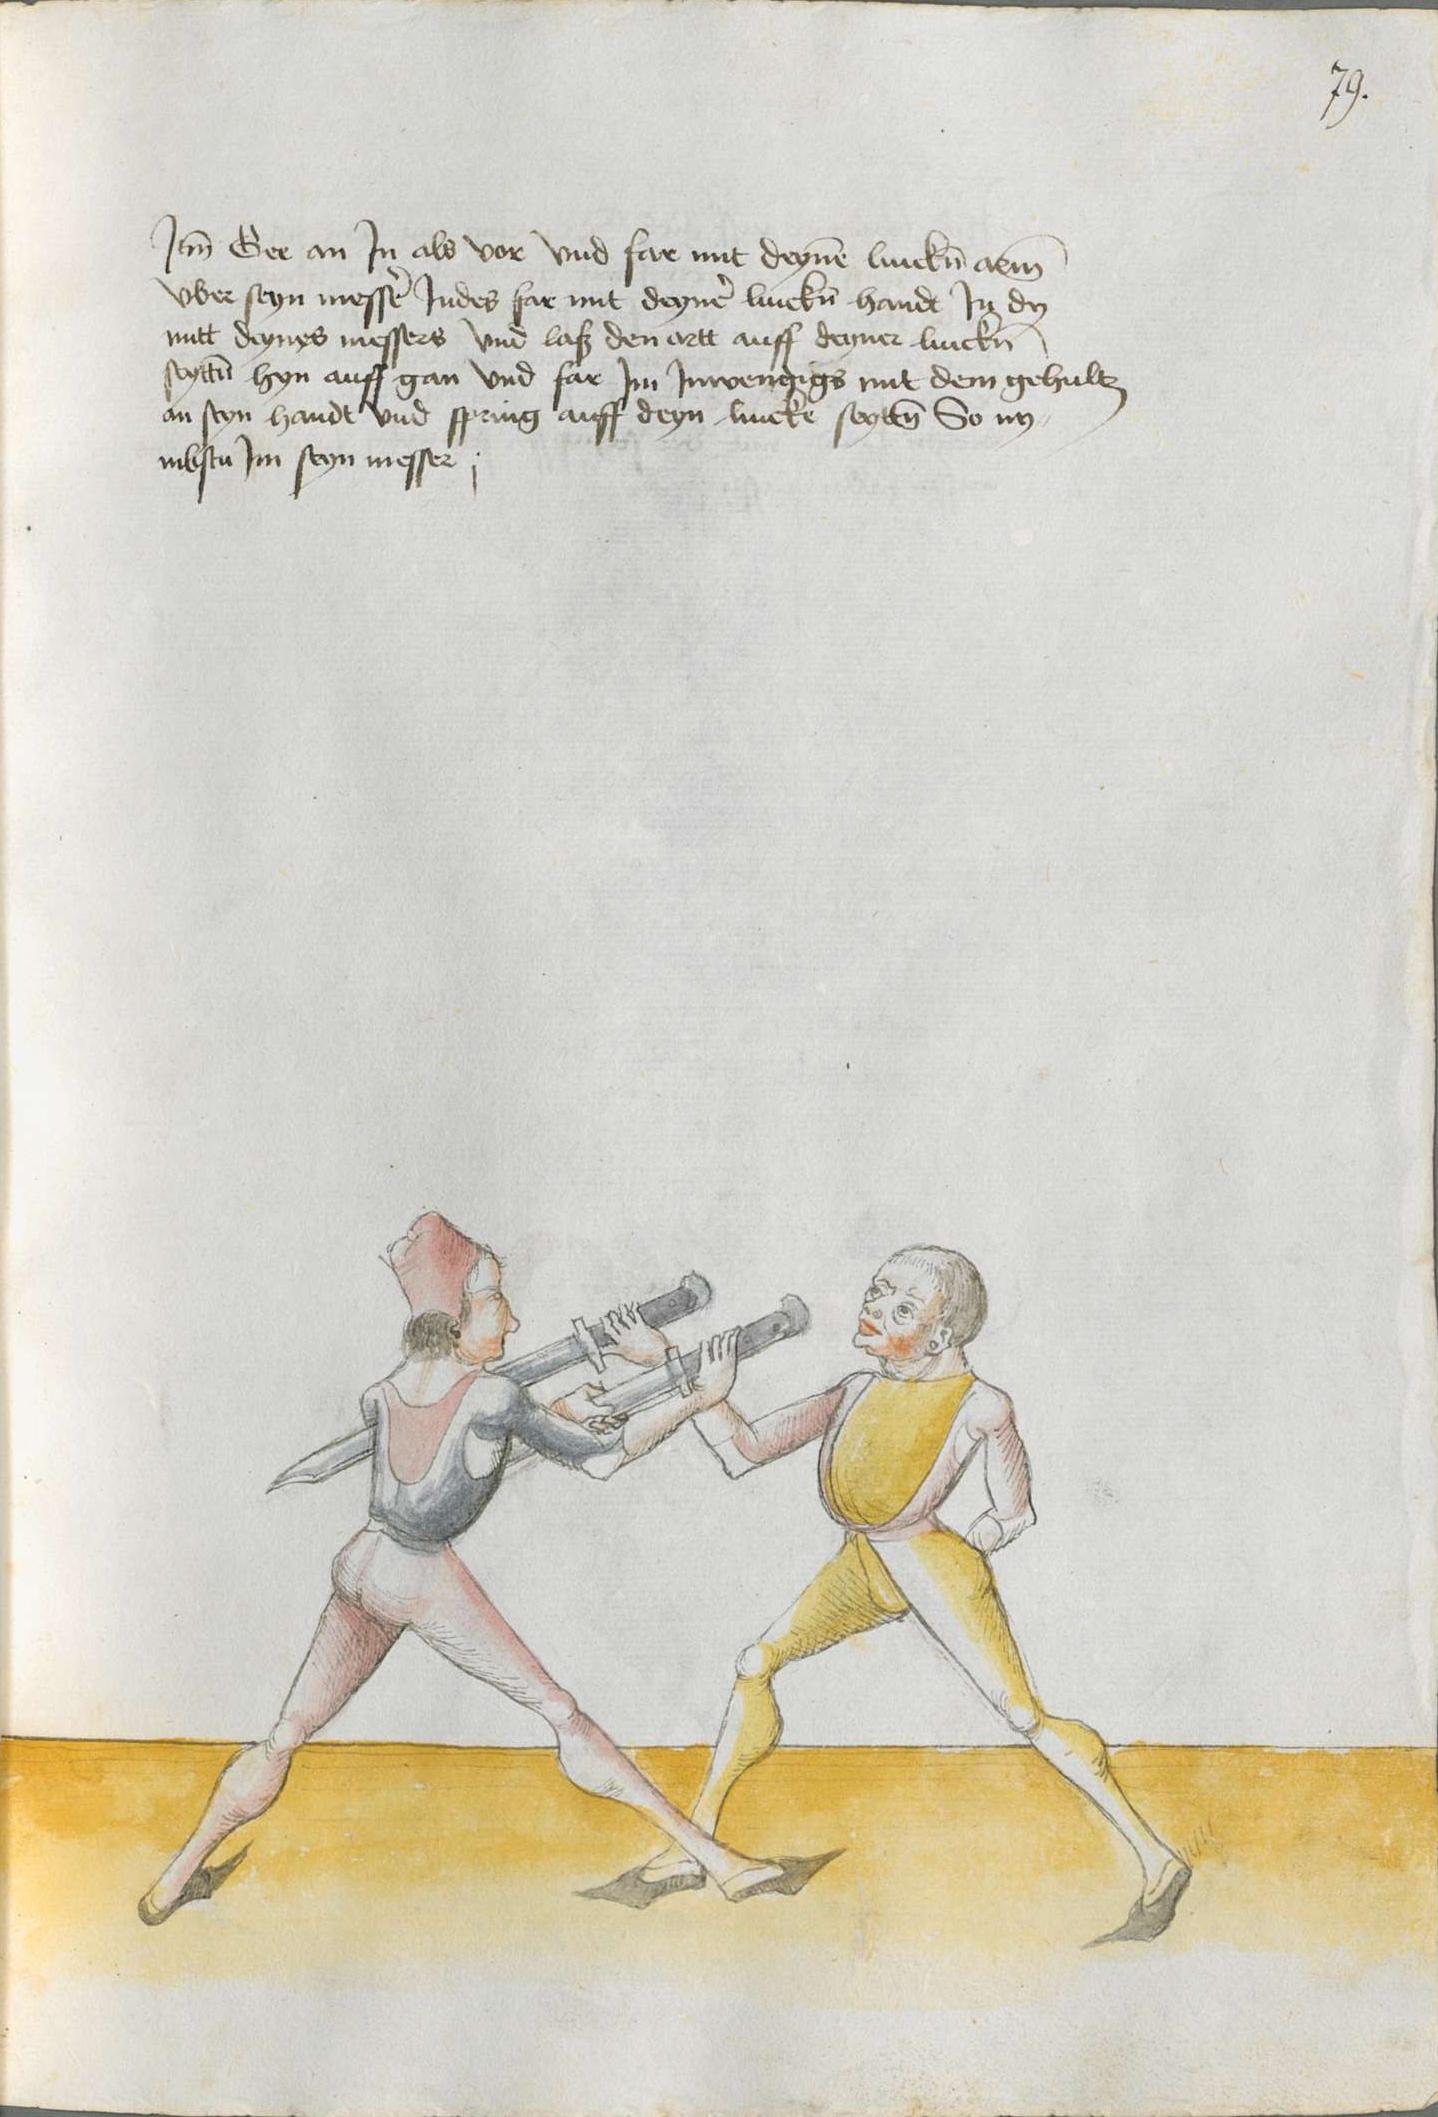 79.
Itm̄ Gee an In als vor vnd far mit deynē linckn̄ arm
vber seyn messer̃ Indes far mit deyner̃ linckn̄ handt In dy
mitt deynes messers vnd laß den ortt auff deyner linckn̄
seyttn̄ hyn auff gan vnd far Im Inwendigs mit dem gehultz
an seyn handt vnd spring auff deyn lincke seyttn̄ So ny⸗
mbstu Im seyn messer ;